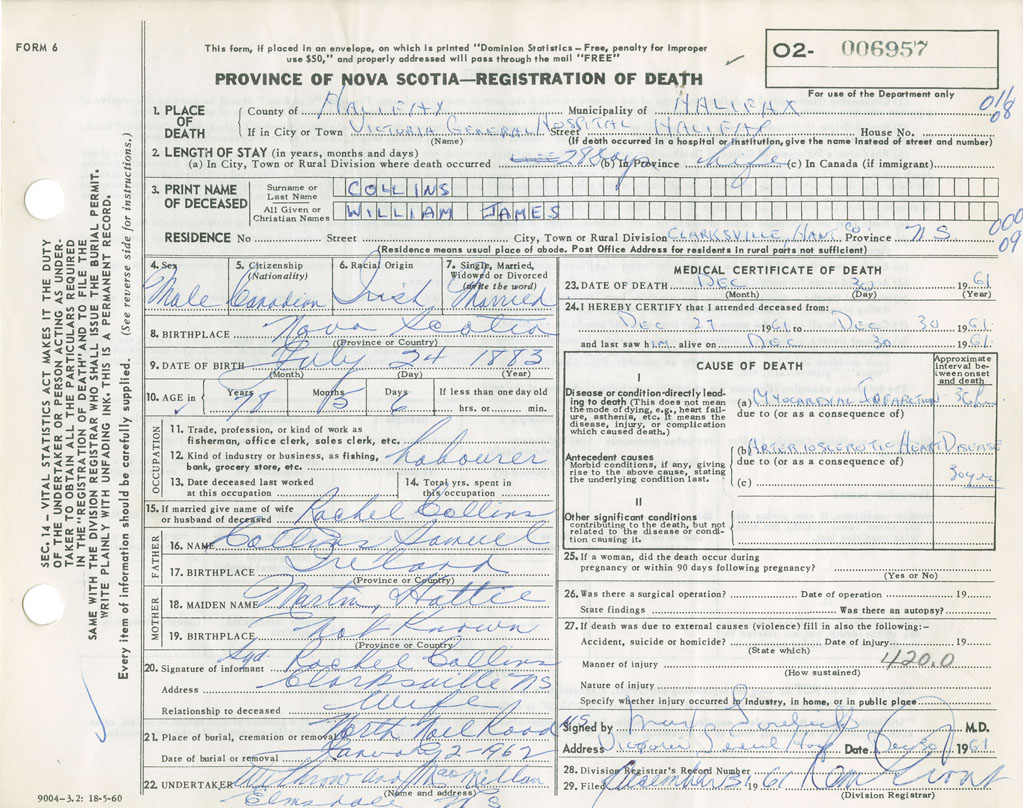 FORM 6
This form, if placed in an envelope, on which is printed "Dominion Statistics – Free, penalty for improper
use $50," and properly addressed will pass through the mail "FREE"
PROVINCE OF NOVA SCOTIA—REGISTRATION OF DEATH
O2- 006957
For use of the Department only
1. PLACE OF DEATH
County of HALIFAX Municipality of HALIFAX
018
08
If in City or Town VICTORIA GENERAL HOSPITAL Street HALIFAX House No.
(Name) (If death occurred in a hospital or institution, give the name instead of street and number)
2. LENGTH OF STAY (in years, months and days)
(a) In City, Town or Rural Division where death occurred 28 days (b) In Province life (c) In Canada (if immigrant)
3. PRINT NAME OF DECEASED
Surname or Last Name COLLINS
All Given or Christian Names WILLIAM JAMES
000
09
RESIDENCE No. Street City, Town or Rural Division CLARKSVILLE, HANT. CO Province NS
(Residence means usual place of abode. Post Office Address for residents in rural parts not sufficient)
4. Sex Male
5. Citizenship (Nationality) Canadian
6. Racial Origin Irish
7. Single, Married, Widowed or Divorced (write the word) Married
8. BIRTHPLACE Nova Scotia
(Province or Country)
9. DATE OF BIRTH July 24 1883
(Month) (Day) (Year)
10. AGE in Years 78 Months 5 Days 6 If less than one day old hrs. or min.
OCCUPATION
11. Trade, profession, or kind of work as fisherman, office clerk, sales clerk, etc.
12. Kind of industry or business, as fishing, bank, grocery store, etc. Labourer
13. Date deceased last worked at this occupation
14. Total yrs. spent in this occupation
15. If married give name of wife or husband of deceased Rachel Collins
FATHER
16. NAME Collins Samuel
17. BIRTHPLACE Ireland
(Province or Country)
MOTHER
18. MAIDEN NAME Martin, Hattie
19. BIRTHPLACE Not Known
(Province or Country)
20. Signature of informant Sgd Rachel Collins
Address Clarksville NS
Relationship to deceased Wife
21. Place of burial, cremation or removal North Noel Road
Date of burial or removal January 2-1962
22. UNDERTAKER and MacMillan
(Name and address)
Elmsdale NS
MEDICAL CERTIFICATE OF DEATH
23. DATE OF DEATH DEC 30 1961
(Month) (Day) (Year)
24. I HEREBY CERTIFY that I attended deceased from:
Dec 29 1961 to Dec 30 1961
and last saw him alive on Dec 30 1961
CAUSE OF DEATH
Approximate interval between onset and death
I
Disease or condition directly leading to death (This does not mean the mode of dying, e.g., heart failure, asthenia, etc. It means the disease, injury, or complication which caused death.)
(a) MYOCARDIAL INFARCTION 36 h
due to (or as a consequence of)
Antecedent causes
Morbid conditions, if any, giving rise to the above cause, stating the underlying condition last.
(b) ARTERIOSCLEROTIC HEART DISEASE
due to (or as a consequence of)
(c) 30 yrs
II
Other significant conditions
contributing to the death, but not related to the disease or condition causing it.
25. If a woman, did the death occur during pregnancy or within 90 days following pregnancy?
(Yes or No)
26. Was there a surgical operation? Date of operation 19
State findings Was there an autopsy?
27. If death was due to external causes (violence) fill in also the following:-
Accident, suicide or homicide? Date of injury 19
(State which)
420.0
Manner of injury
(How sustained)
Nature of injury
Specify whether injury occurred in industry, in home, or in public place
Signed by M.D.
Address Victoria Date Dec 30 1961
28. Division Registrar's Record Number
29. Filed December 31 1961
(Division Registrar)
SEC. 14 – VITAL STATISTICS ACT MAKES IT THE DUTY
OF THE UNDERTAKER OR PERSON ACTING AS UNDER-
TAKER TO OBTAIN ALL THE PARTICULARS REQUIRED
IN THE "REGISTRATION OF DEATH" AND TO FILE THE
SAME WITH THE DIVISION REGISTRAR WHO SHALL ISSUE THE BURIAL PERMIT.
WRITE PLAINLY WITH UNFADING INK. THIS IS A PERMANENT RECORD.
Every item of information should be carefully supplied. (See reverse side for instructions.)
9004-3.2: 18-5-60